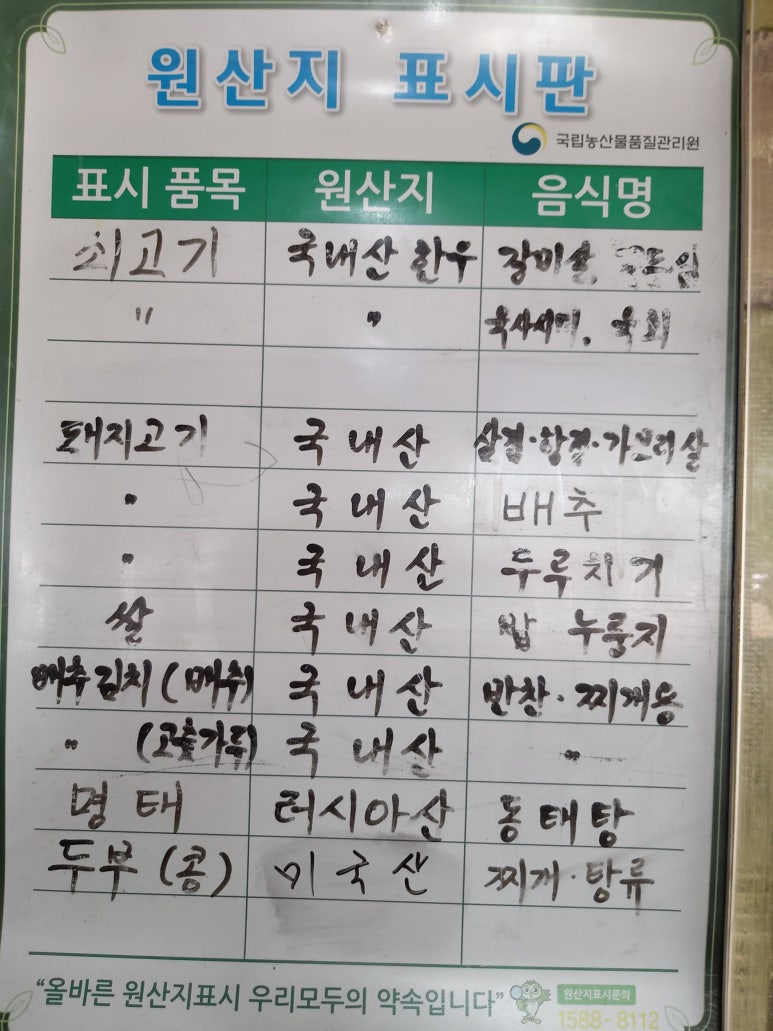 원산지 표시판
국립농산물품질관리원
표시 품목 원산지 음식명
쇠고기 국내산 한우 갈미살,
〃 〃 육사시미, 육회
돼지고기 국내산 삼겹·항정·가브리살
〃 국내산 배추
〃 국내산 두루치기
쌀 국내산 밥 누룽지
배추김치 (배추) 국내산 반찬·찌개용
〃 (고춧가루) 국내산 〃
명태 러시아산 동태탕
두부 (콩) 미국산 찌개·탕류
“올바른 원산지표시 우리모두의 약속입니다”
원산지표시문의
1588-8112